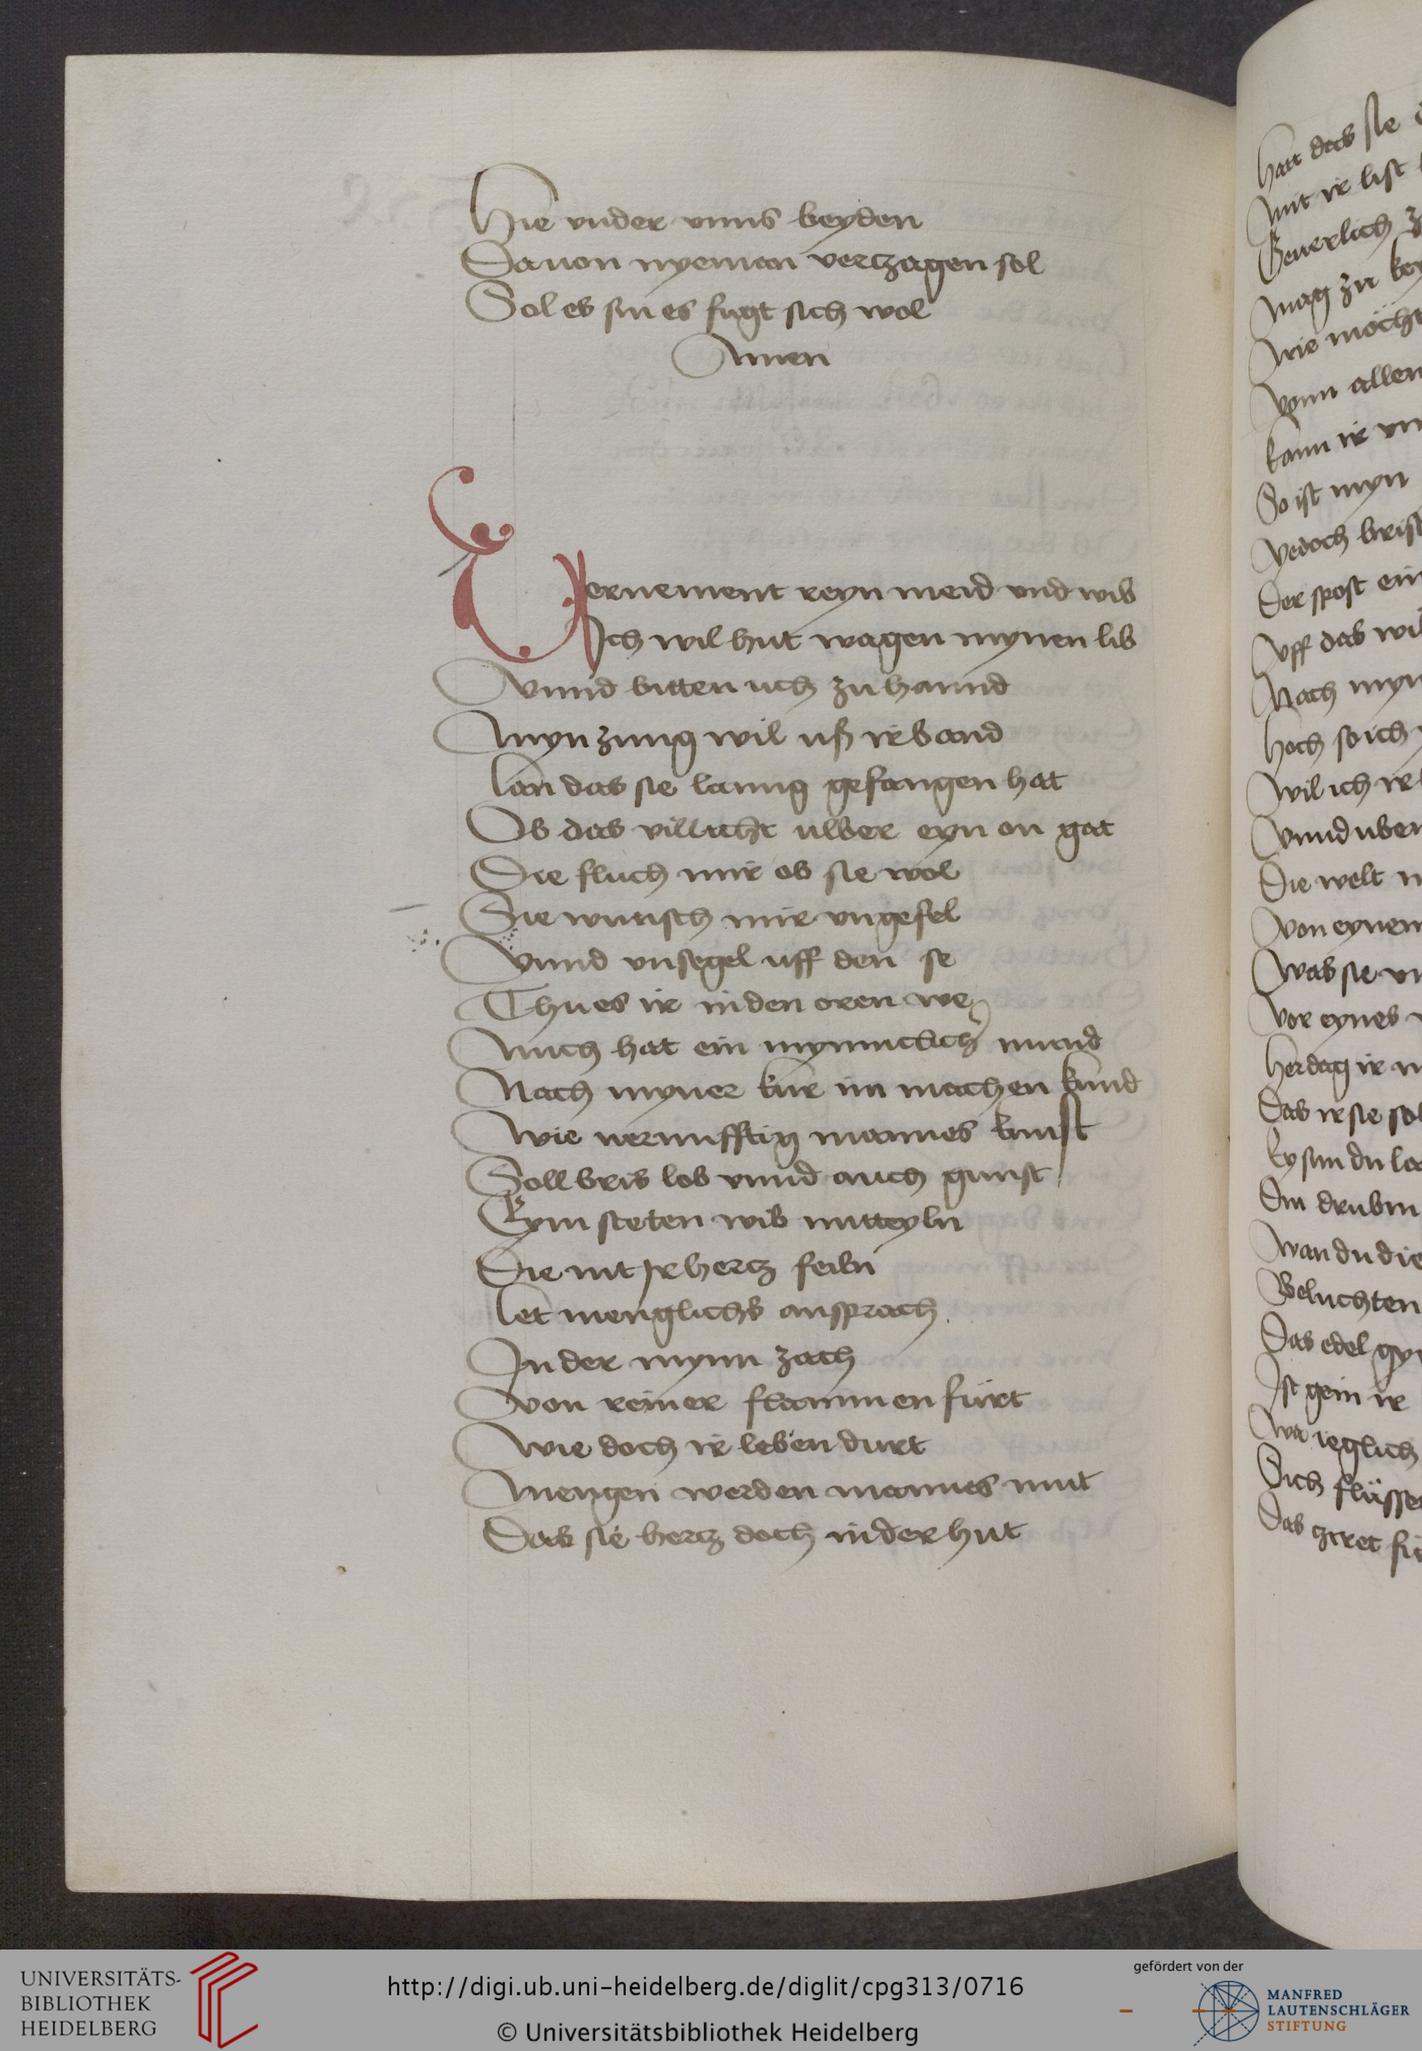 Hie vnder vnns beyden
Dauon nyeman vertzagen sol
Sol es sin es fugt sich wol
Amen
Vernement reyn meid vnd wib
Ich wil hut wagen mynen lib
Vnnd bitten uch zu hannd
Myn zung wil uß ir band
Lan das sie lanng gefangen hat
Ob das villicht ulber eyn on gat
Die fluch mir ob sie wol
Sie wunsch mir vngefel
Vnnd vnsegel uff den se
Thu es ir inden oren we
Mich hat ein mynnclich mund
Nach myner kur im machen kund
Wie vernufftig mannes kunst
Soll bris lob vnnd auch gunst
Eym steten wib mitteyln
Die nit jr hertz feiln
Let menglichs ansprach
In der mynn zach
Von reiner flammen fürt
Wie doch ir leben durt
Mengen werden mannes mut
Das sie hertz doch inder hut
hatt das sie
mit ir list
Geuerlich
mag zu
wie mocht
vonn allen
kann ir
So ist myn
yedoch brist
Der spost ein
vff das
Nach myn
hoch so ich
wil ich ir
vnnd uber
Die welt
von eynem
was sie
vor eynes
herdag ir
Das ir sie sol
Ey sun du
Din
wan du die
Beluchten
Das edel
Ist gein ir
wa ieglich
Sich flüsse
Das
UNIVERSITÄTS-
BIBLIOTHEK
HEIDELBERG
http://digi.ub.uni-heidelberg.de/diglit/cpg313/0716
© Universitätsbibliothek Heidelberg
gefördert von der
MANFRED
LAUTENSCHLÄGER
STIFTUNG